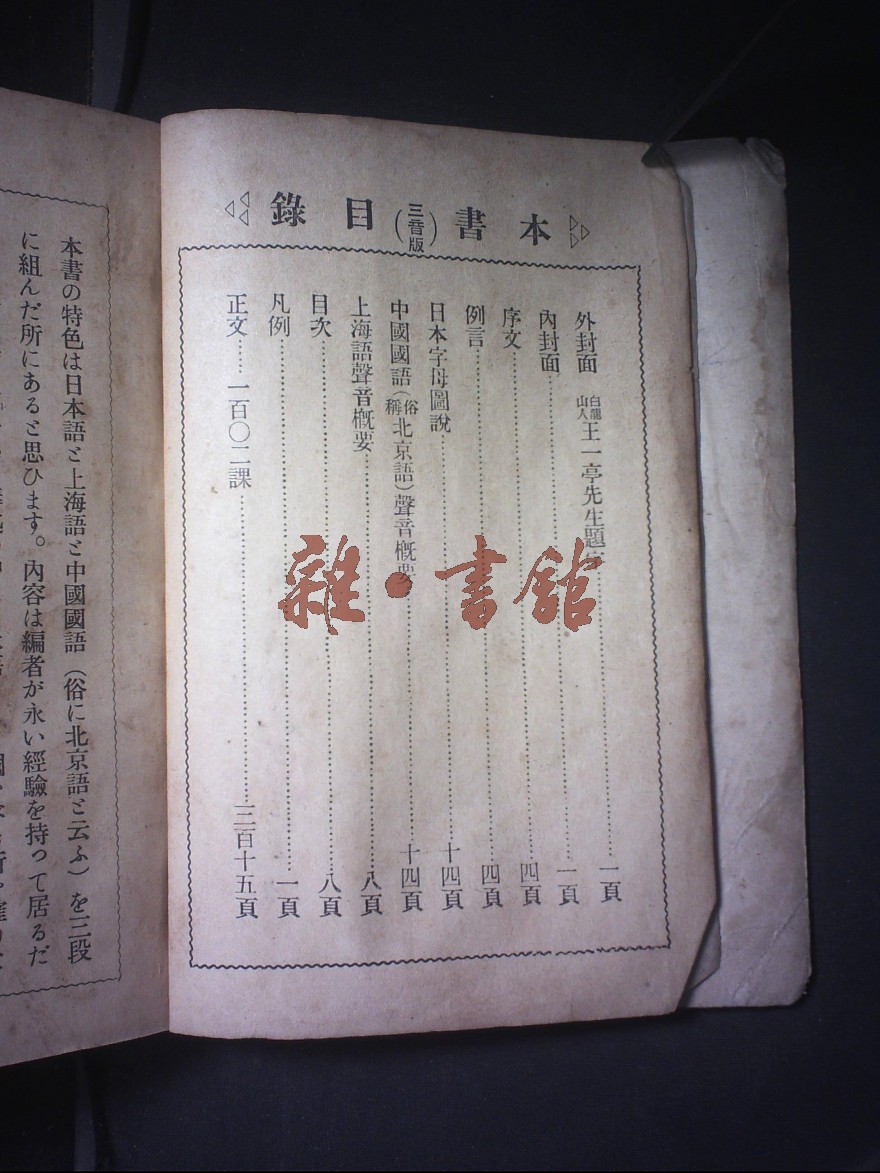 本書（三音版）目錄
外封面 白龍山人王一亭先生題……一頁
內封面……一頁
序文……四頁
例言……四頁
日本字母圖說……十四頁
中國國語（俗稱北京語）聲音概要……十四頁
上海語聲音概要……八頁
目次……八頁
凡例……一頁
正文……一百〇二課……二百十五頁
雜·書館
本書の特色は日本語と上海語と中國國語（俗に北京語と云ふ）を三段
に組んだ所にあると思ひます。內容は編者が永い經驗を持って居るだ